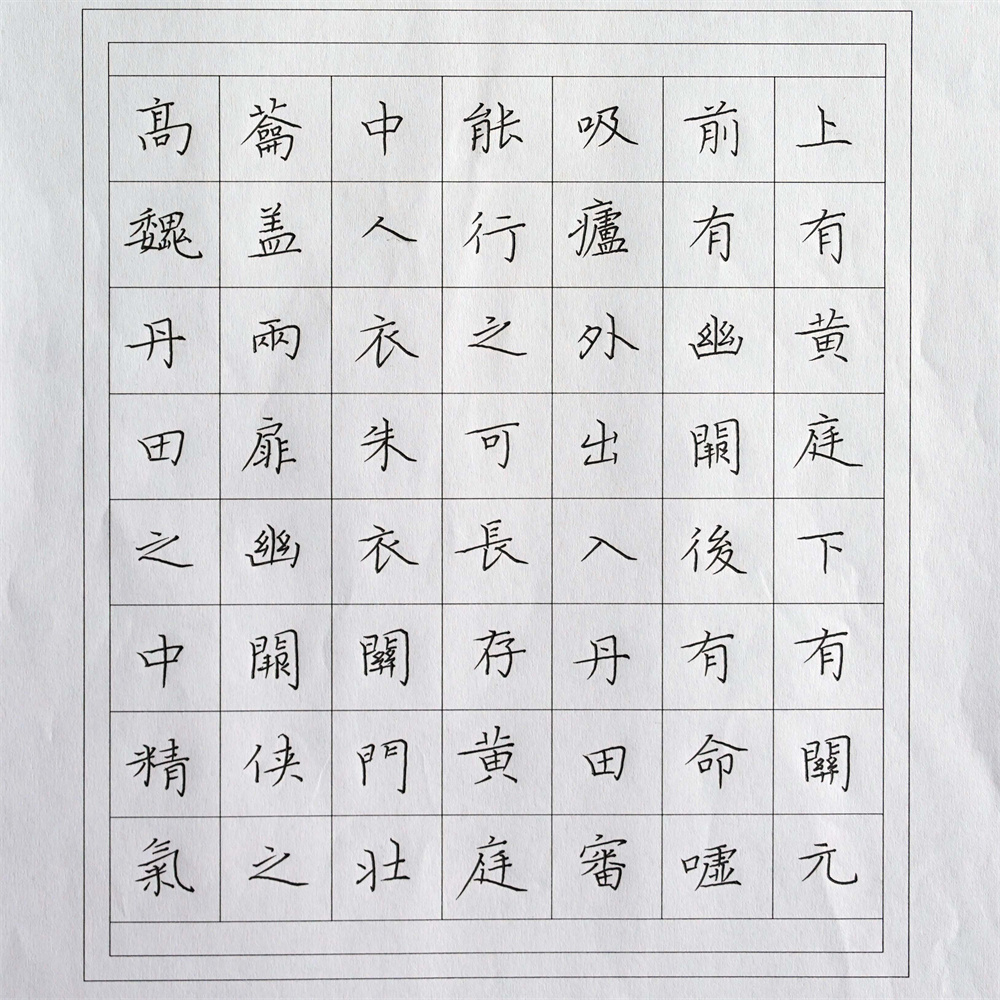 上有黄庭下有關元
前有幽闕後有命噓
吸廬外出入丹田審
能行之可長存黄庭
中人衣朱衣關門壯
蘥盖兩扉幽闕侠之
髙魏丹田之中精氣